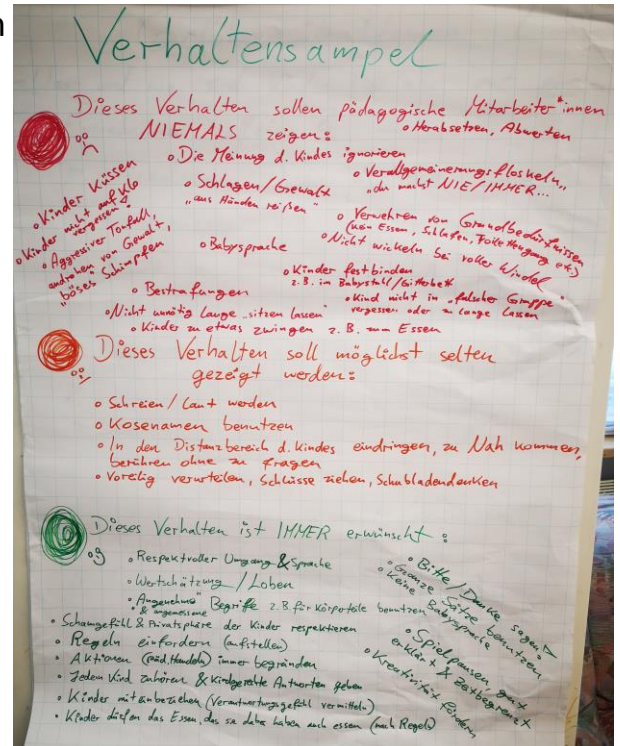 n
Verhaltensampel
Dieses Verhalten sollen pädagogische Mitarbeiter*innen
NIEMALS zeigen:
◦ Herabsetzen, Abwerten
◦ Die Meinung d. Kindes ignorieren
◦ Verallgemeinerungsfloskeln
"du machst NIE/IMMER...
◦ Schlagen/Gewalt
"aus Händen reißen"
◦ Kinder Küssen
◦ Kinder nicht auf Klo
vergessen!
◦ Aggressiver Tonfall,
androhen von Gewalt,
"böses Schimpfen
◦ Verwehren von Grundbedürfnissen
(kein Essen, Schlafen, Toilettengang etc)
◦ Nicht wickeln bei voller Windel
◦ Babysprache
◦ Kinder festbinden
z.B. im Babystuhl/Gitterbett
◦ Bestrafungen
◦ Kind nicht in "falscher Gruppe"
vergessen oder zu lange lassen
◦ Nicht unnötig lange "sitzen lassen"
◦ Kinder zu etwas zwingen z.B. zum Essen
Dieses Verhalten soll möglichst selten
gezeigt werden:
◦ Schreien/Laut werden
◦ Kosenamen benutzen
◦ In den Distanzbereich d. Kindes eindringen, zu Nah kommen,
berühren ohne zu fragen
◦ Voreilig verurteilen, Schlüsse ziehen, Schubladendenken
Dieses Verhalten ist IMMER erwünscht:
◦ Respektvoller Umgang & Sprache
◦ Wertschätzung / Loben
◦ "Angenehme"
& angemessene Begriffe z.B. für Körperteile benutzen
◦ Schamgefühl & Privatsphäre der Kinder respektieren
◦ Regeln einfordern (aufstellen)
◦ Aktionen (päd. Handeln) immer begründen
◦ Jedem Kind zuhören & kindgerechte Antworten geben
◦ Kinder miteinbeziehen (Verantwortungsgefühl vermitteln)
◦ Kinder dürfen das Essen, das sie dabei haben auch essen (nach Regeln)
◦ Bitte/Danke sagen
◦ Ganze Sätze benutzen
◦ Keine Babysprache
◦ Spielpausen gut
erklärt & zeitbegrenzt
◦ Kreativität fördern